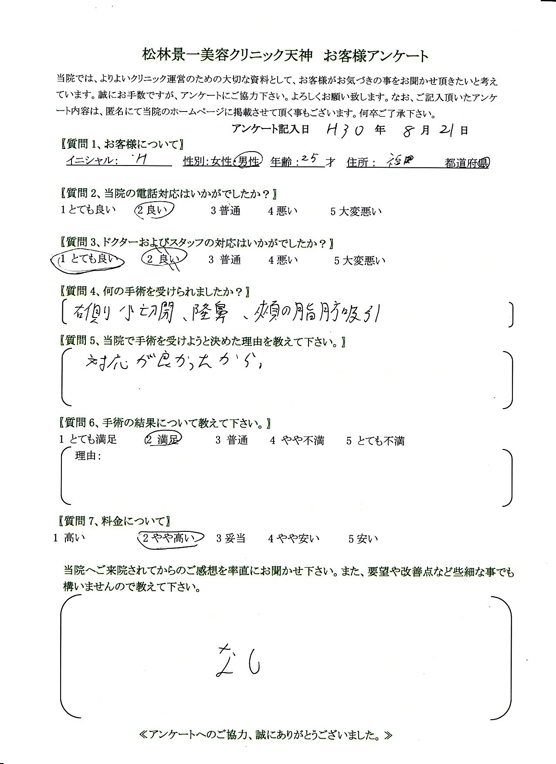 松林景一美容クリニック天神　お客様アンケート
当院では、よりよいクリニック運営のための大切な資料として、お客様がお気づきの事をお聞かせ頂きたいと考え
ています。誠にお手数ですが、アンケートにご協力下さい。よろしくお願い致します。なお、ご記入頂いたアンケ
ート内容は、匿名にて当院のホームページに掲載させて頂く事もございます。何卒ご了承下さい。
アンケート記入日 H30 年 8 月 21 日
〖質問 1、お客様について〗
イニシャル： H 性別:女性・男性 年齢：25 才 住所： 都道府県
〖質問 2、当院の電話対応はいかがでしたか？〗
1 とても良い 2 良い 3 普通 4 悪い 5 大変悪い
〖質問 3、ドクターおよびスタッフの対応はいかがでしたか？〗
1 とても良い 2 良い 3 普通 4 悪い 5 大変悪い
〖質問 4、何の手術を受けられましたか？〗
右側 小切開、隆鼻、頬の脂肪吸引
〖質問 5、当院で手術を受けようと決めた理由を教えて下さい。〗
対応が良かったから。
〖質問 6、手術の結果について教えて下さい。〗
1 とても満足 2 満足 3 普通 4 やや不満 5 とても不満
理由：
〖質問 7、料金について〗
1 高い 2 やや高い 3 妥当 4 やや安い 5 安い
当院へご来院されてからのご感想を率直にお聞かせ下さい。また、要望や改善点など些細な事でも
構いませんので教えて下さい。
なし
≪アンケートへのご協力、誠にありがとうございました。≫